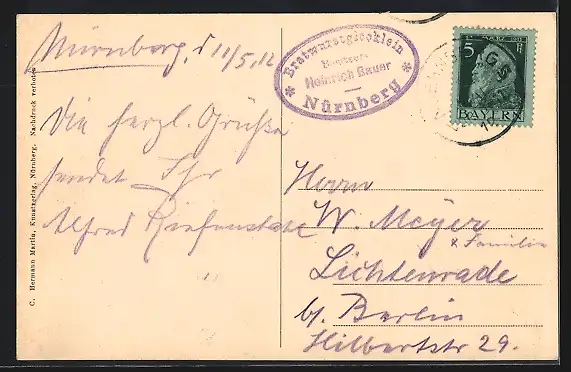 Nürnberg, d 11/5.12
Die herzl. Grüße
sendet Ihr
Alfred Riefenstahl
Bratwurstglöcklein
Besitzer:
Heinrich Bauer
Nürnberg
5
BAYERN
Herrn
W. Meyer
& Familie
Lichtenrade
b/. Berlin
Hilbertstr 29.
C. Hermann Martin, Kunstverlag, Nürnberg. Nachdruck verboten